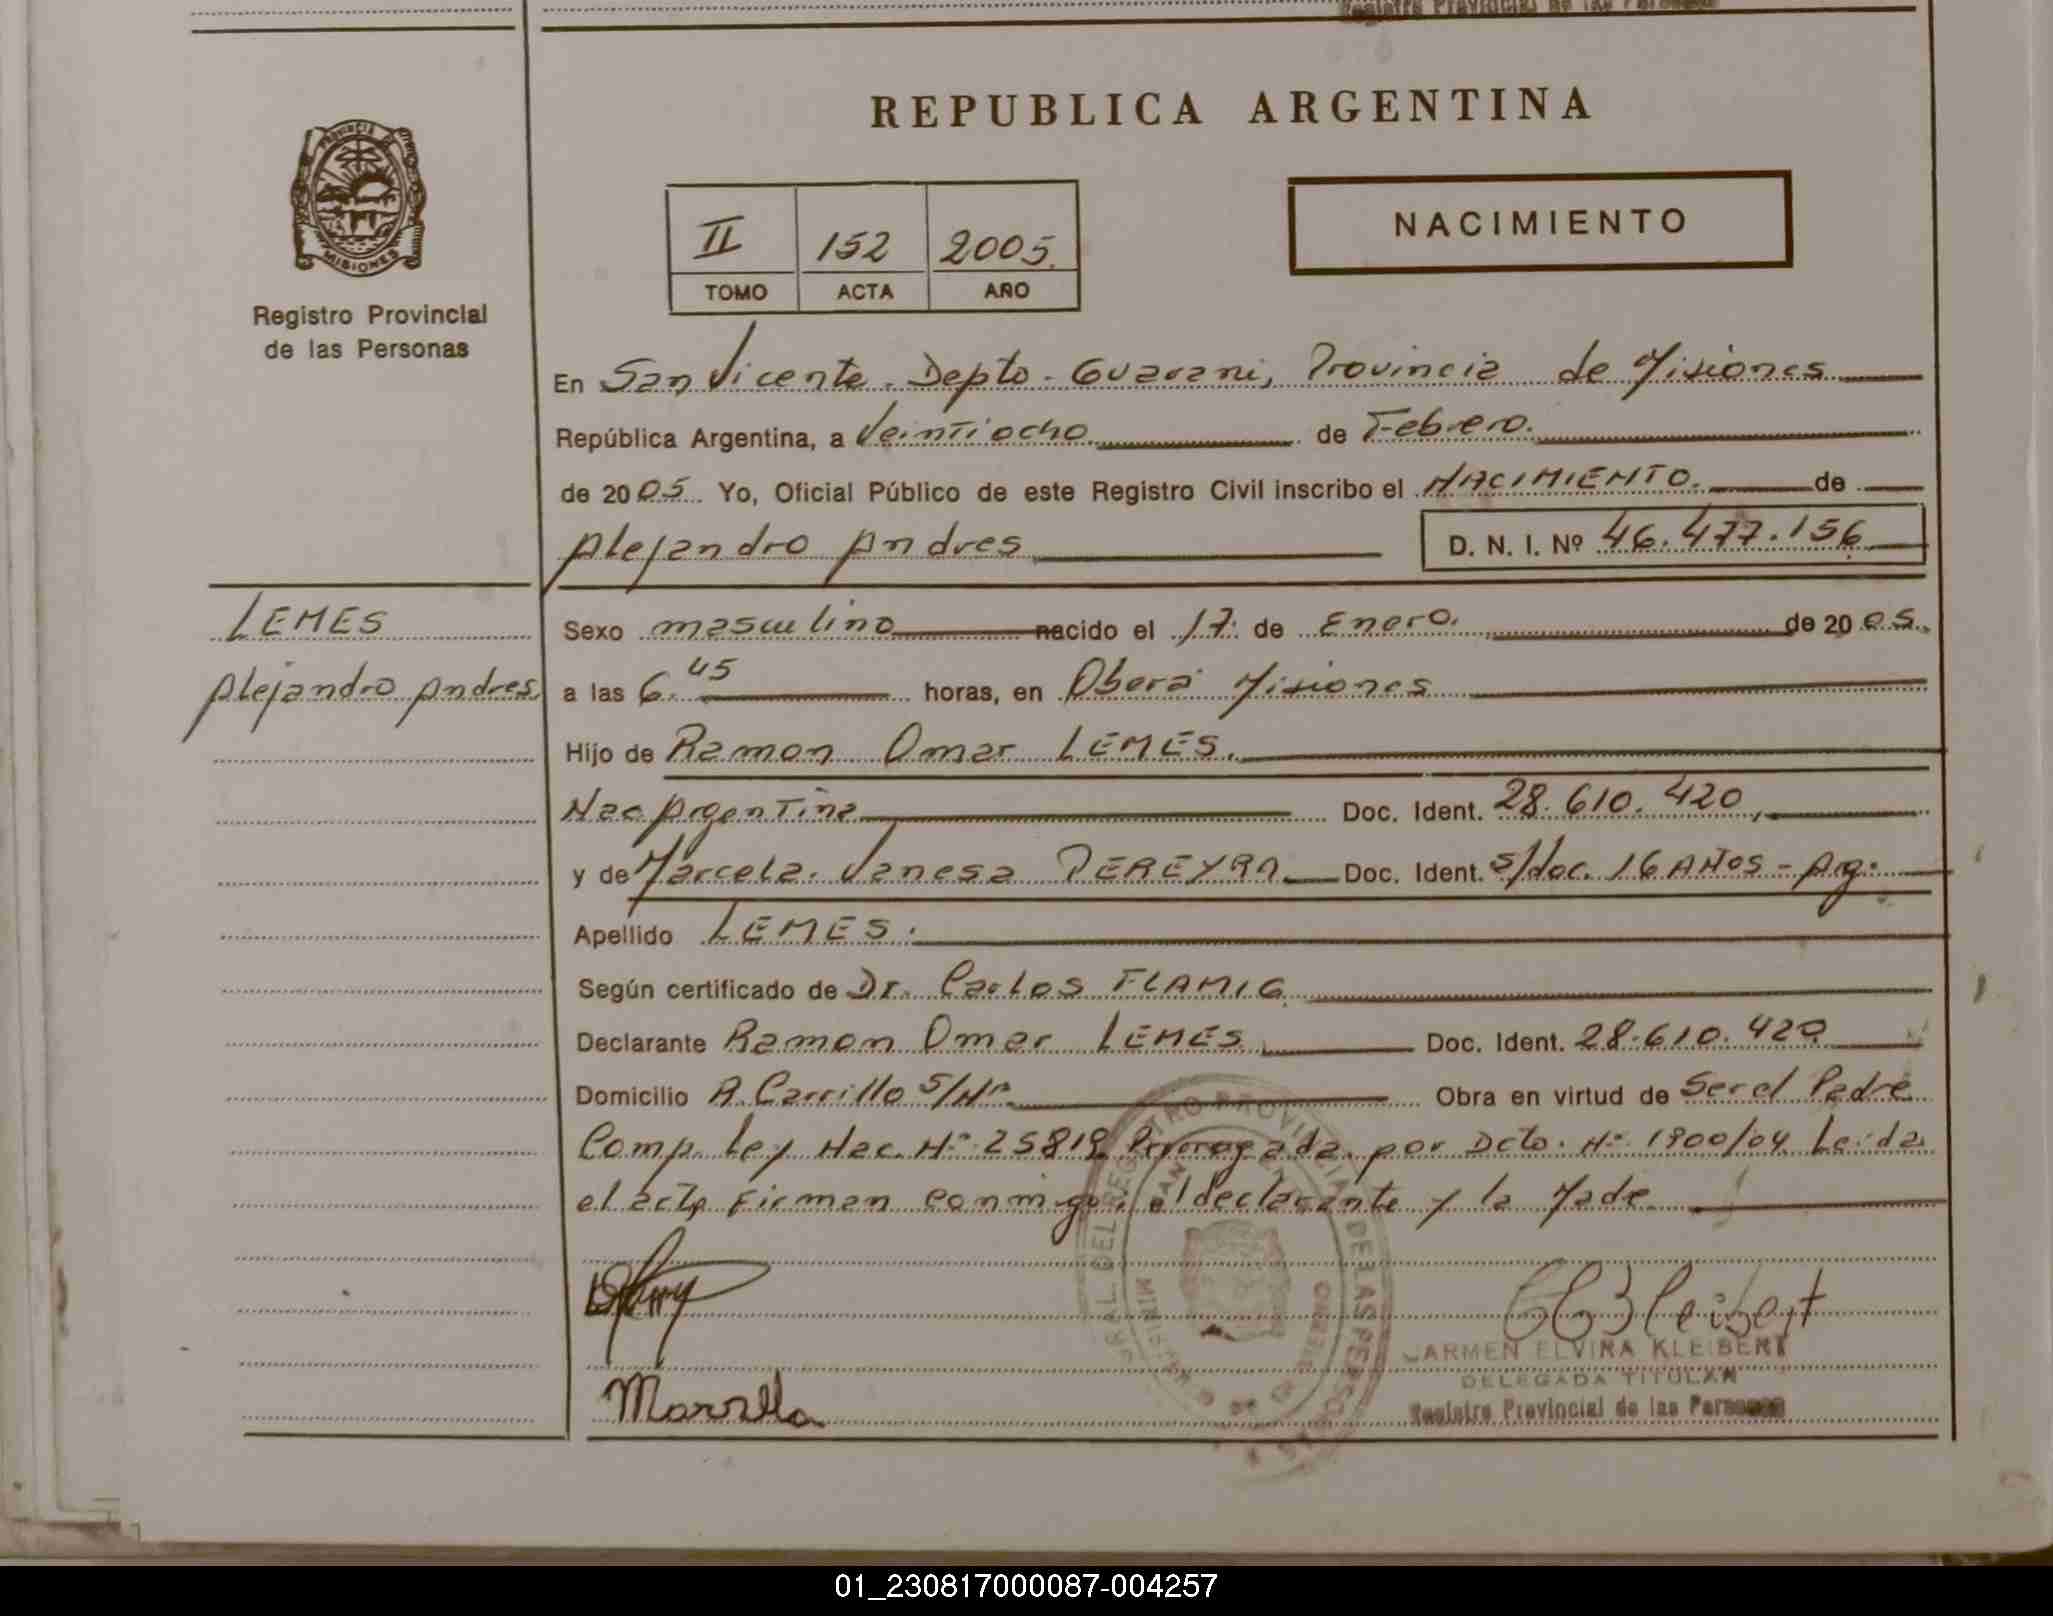 Registro Provincial de las Personas
REPUBLICA ARGENTINA
PROVINCIA
MISIONES
Registro Provincial
de las Personas
II 152 2005.
TOMO ACTA AÑO
NACIMIENTO
En San Vicente. Depto. Guarani, Provincia de Misiones
República Argentina, a Veintiocho de Febrero.
de 2005 Yo, Oficial Público de este Registro Civil inscribo el NACIMIENTO. de
Alejandro Andres D. N. I. Nº 46.477.156
LEMES
Alejandro Andres
Sexo masculino nacido el 17 de Enero. de 2005.
a las 6.45 horas, en Oberá Misiones
Hijo de Ramon Omar LEMES.
Nac Argentina Doc. Ident. 28.610.420
y de Marcela Vanesa PEREYRA Doc. Ident. s/doc. 16 AÑOS - Arg.
Apellido LEMES.
Según certificado de Dr. Carlos FLAMIG
Declarante Ramon Omar LEMES Doc. Ident. 28.610.420
Domicilio R. Carrillo S/Nº Obra en virtud de Ser el Padre
Comp. Ley Nac. Nº 25819 Prorrogada por Dcto. Nº 1900/04 Leida
el acta Firman conmigo, el declarante y la Madre
Marzella
CARMEN ELVIRA KLEIBERT
DELEGADA TITULAR
Registro Provincial de las Personas
01_230817000087-004257